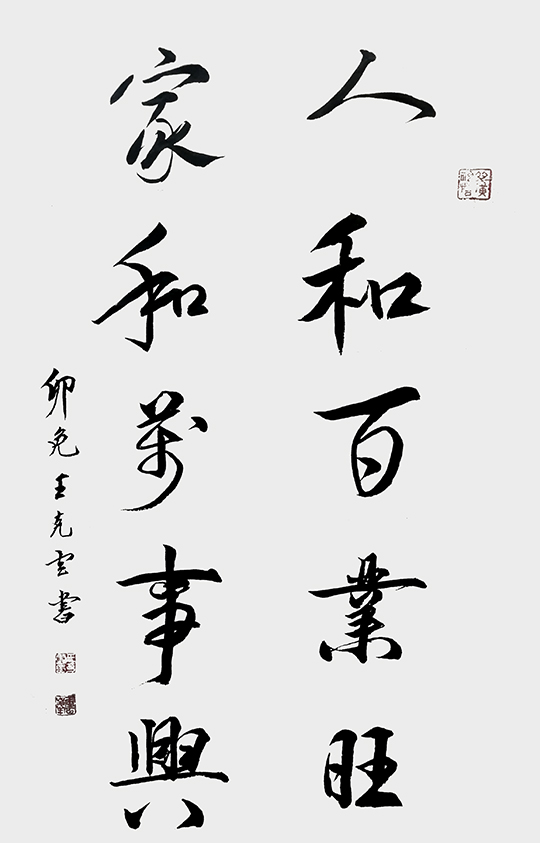 人和百業旺
家和萬事興
卯兔王克云書